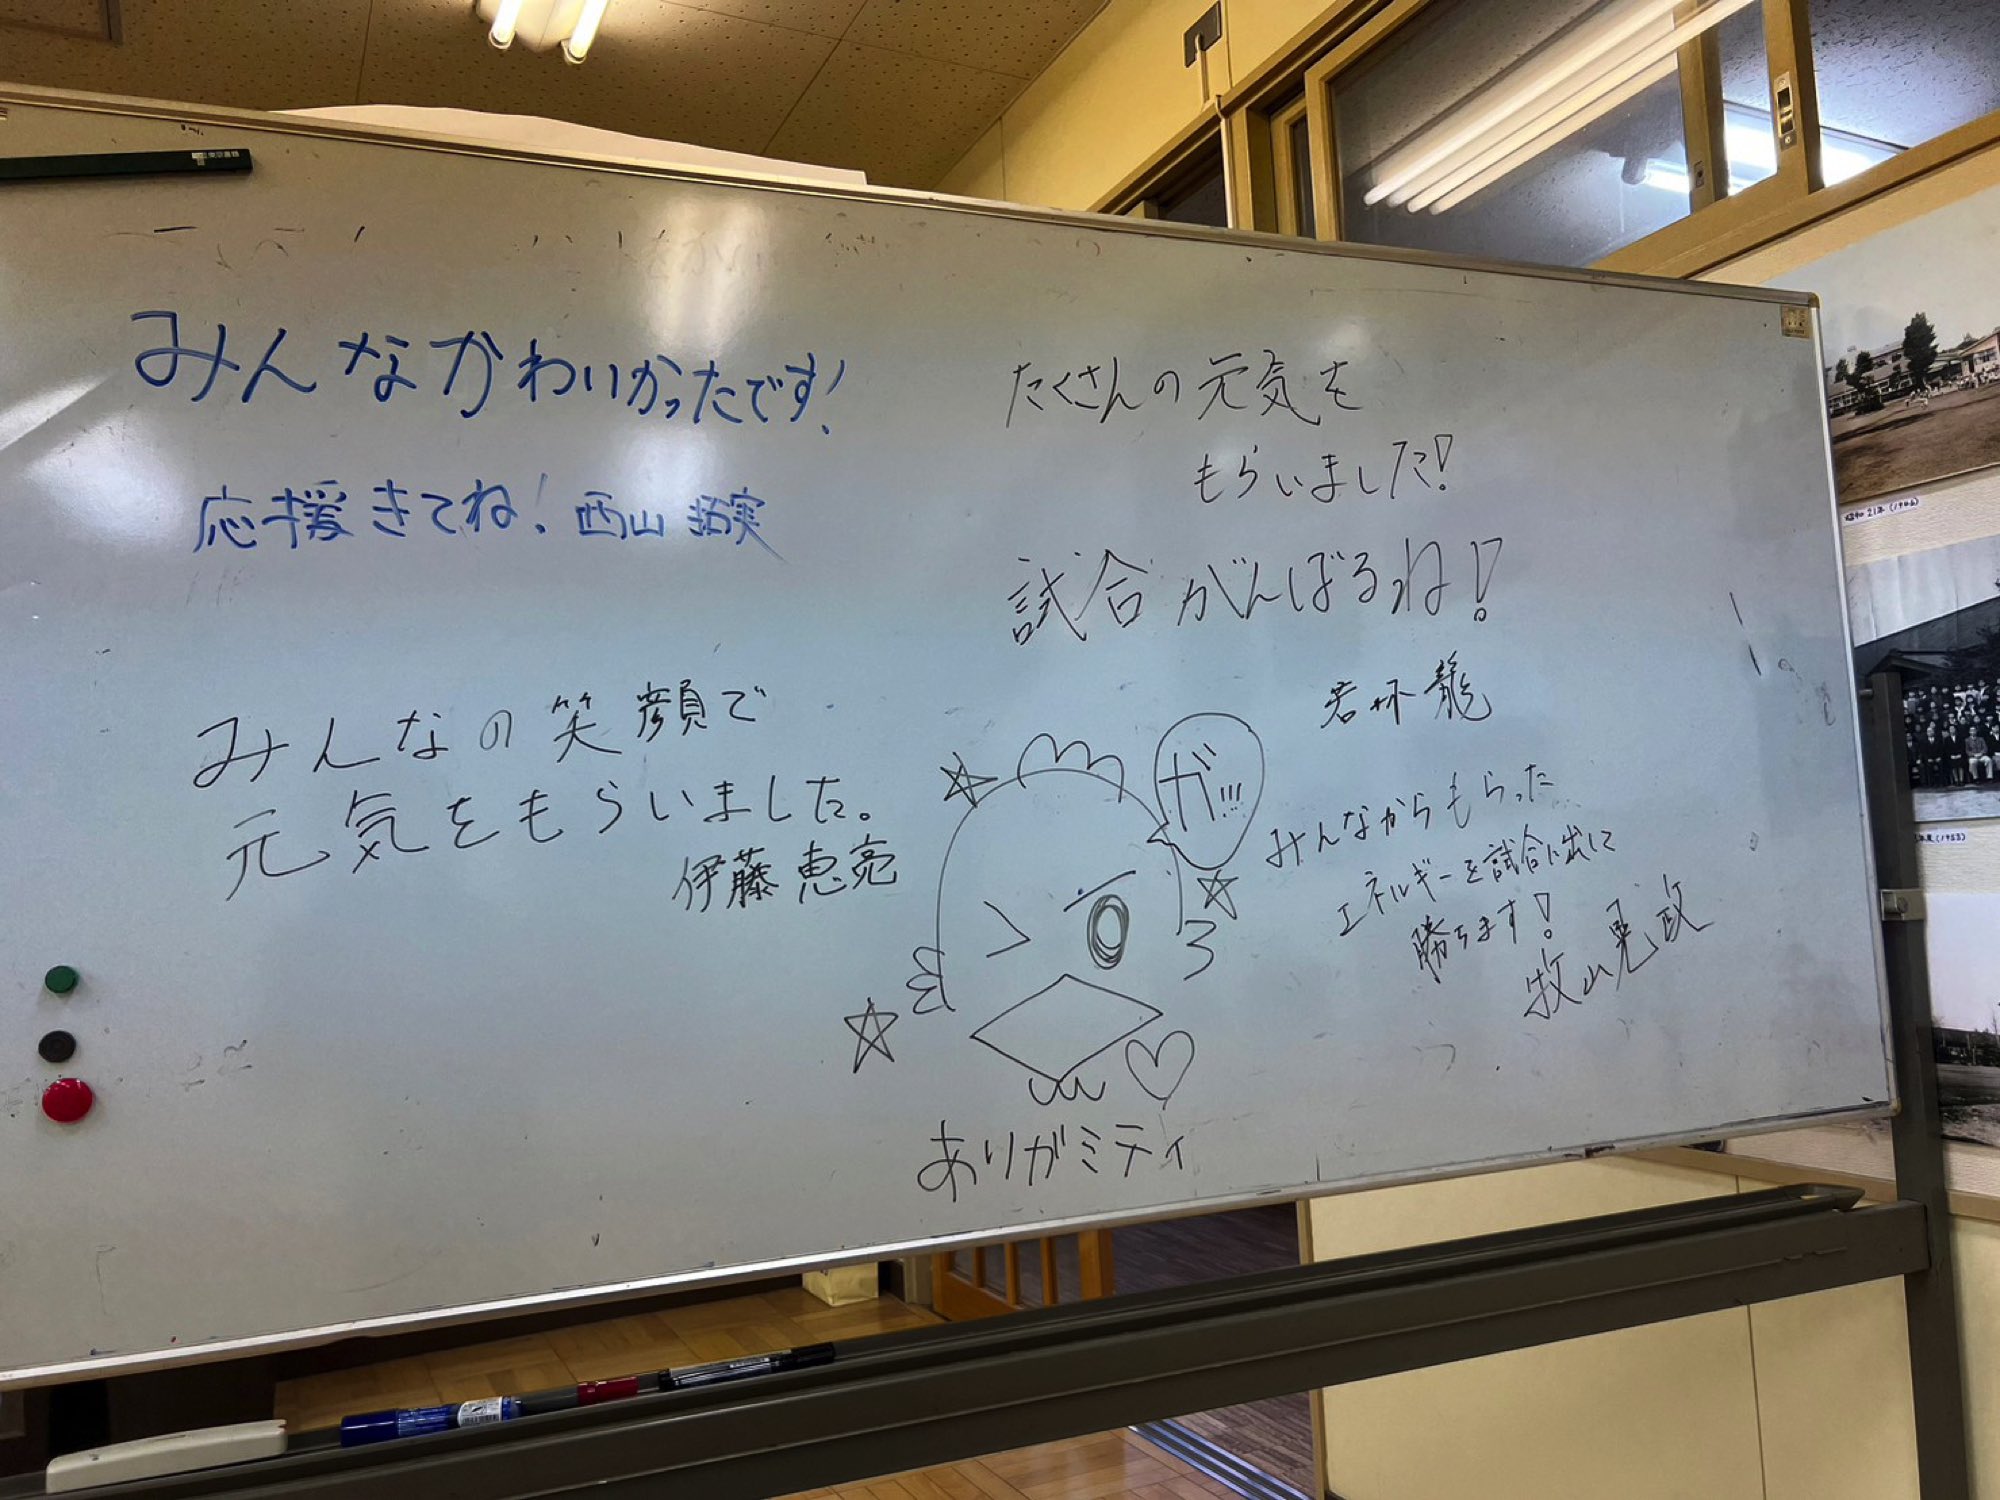 みんなかわいかったです!
応援きてね! 西山 拓実
みんなの笑顔で
元気をもらいました。
伊藤 恵亮
たくさんの元気を
もらいました!
試合がんばるね!
若林 龍
ガ!!!
みんなからもらった
エネルギーを試合に出して
勝ちます!
牧山 晃政
ありがミティ
昭和21年(1946)
年度(1953)